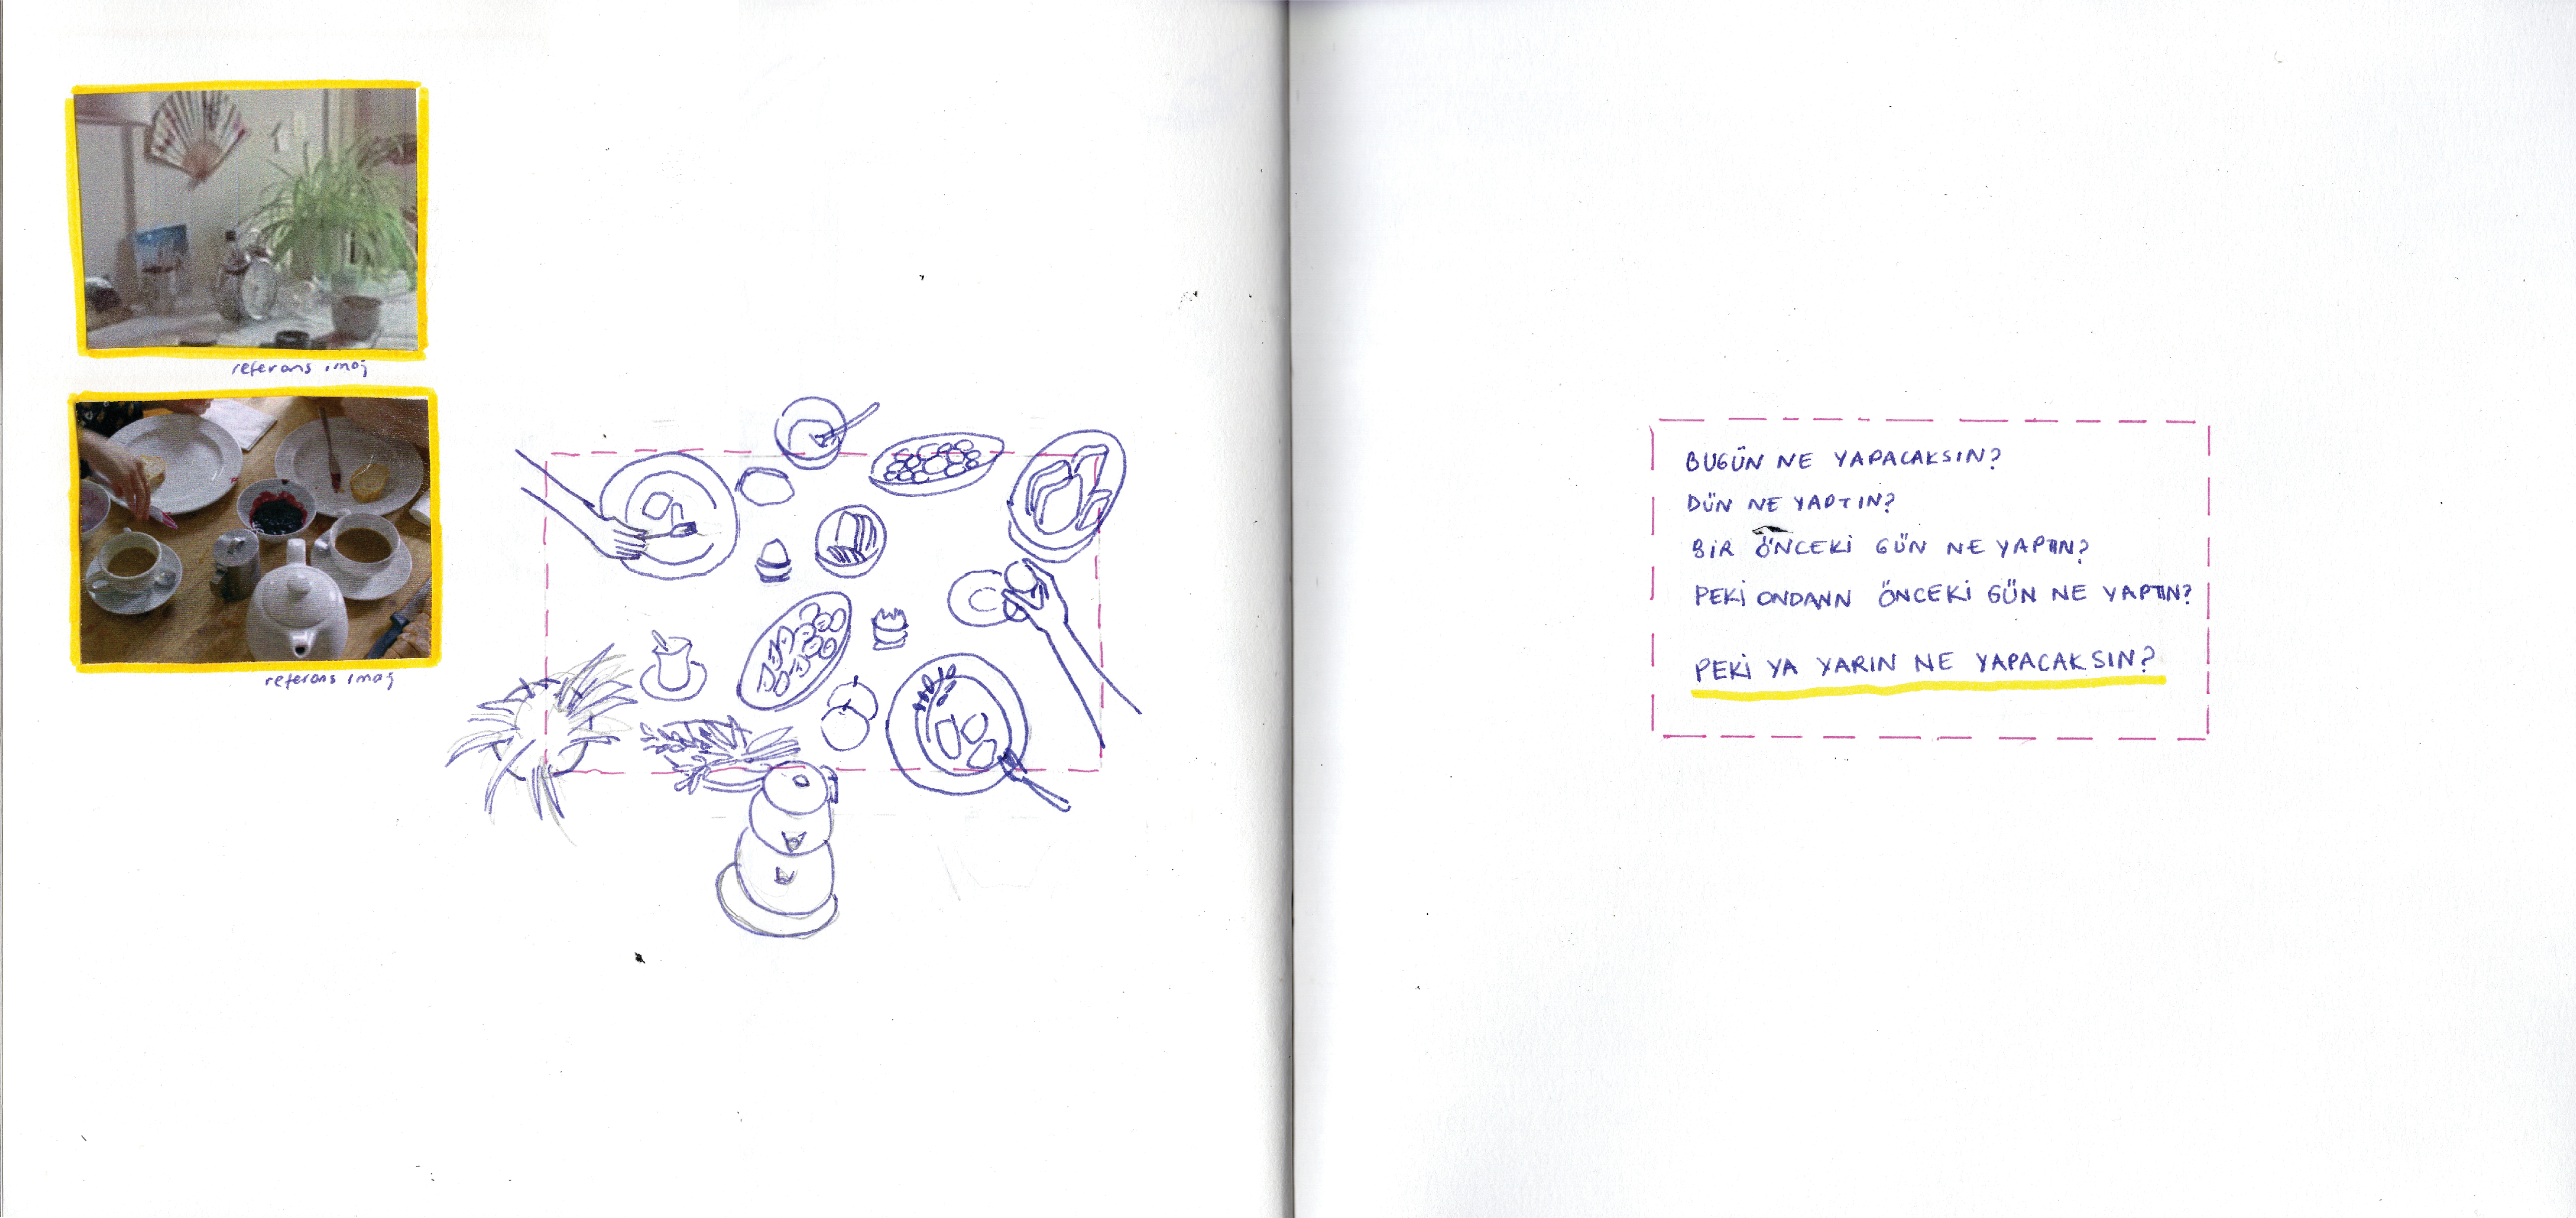 referans imaj
referans imaj
BUGÜN NE YAPACAKSIN?
DÜN NE YAPTIN?
BİR ÖNCEKİ GÜN NE YAPTIN?
PEKİ ONDANN ÖNCEKİ GÜN NE YAPTIN?
PEKİ YA YARIN NE YAPACAKSIN?